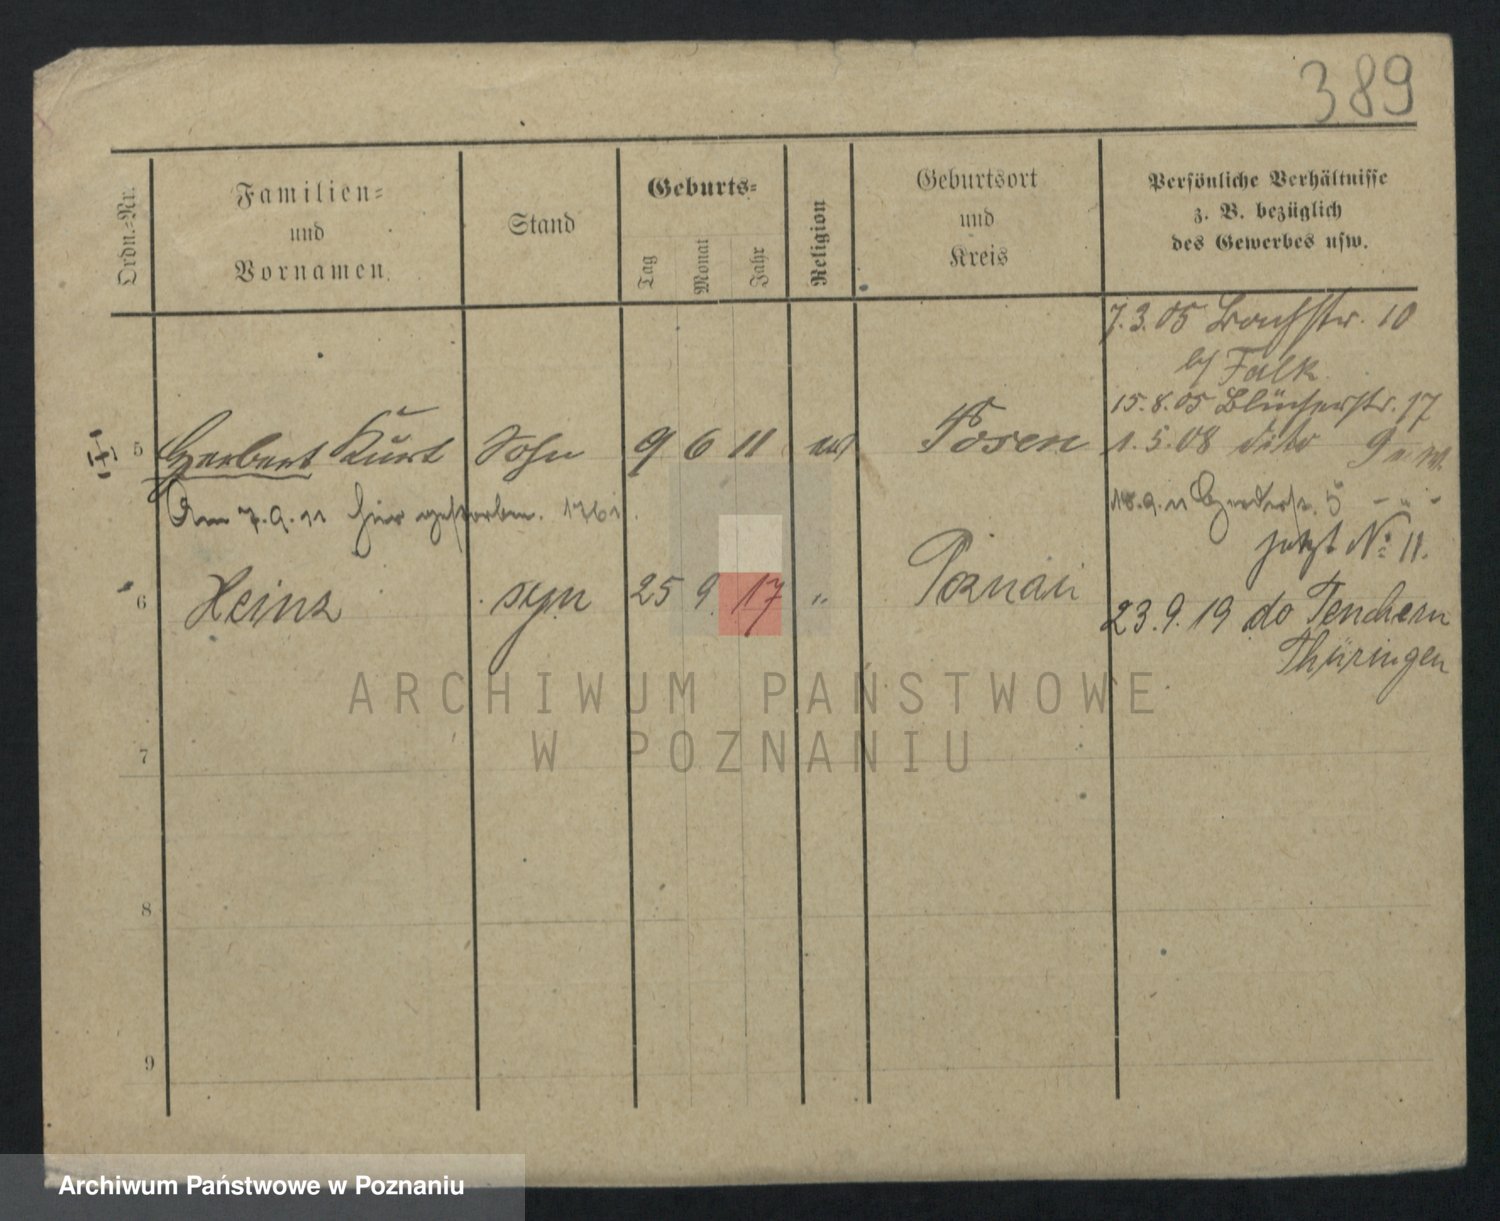 389
Ordn.=Nr.
Familien=
und
Vornamen
Stand
Geburts=
Tag
Monat
Jahr
Religion
Geburtsort
und
Kreis
Persönliche Verhältnisse
z. B. bezüglich
des Gewerbes usw.
7.3.05 Bachstr. 10
b/ Falk
15.8.05 Blücherstr. 17
5 Herbert Kurt Sohn 9 6 11 Posen 1.5.08 dito
Am 7.9.11 hier gestorben. 1761.
18.9.11 5
jetzt No 11.
6 Heinz syn 25 9. 17 " Poznań
23.9.19 do Tenchern
Thüringen
7
8
9
ARCHIWUM PAŃSTWOWE
W POZNANIU
Archiwum Państwowe w Poznaniu